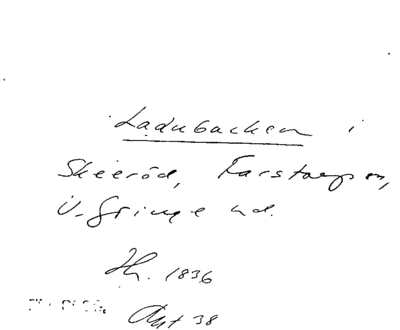 Ladubacken i
Skeeröd, Farstorps sn,
V. Göinge hd.
Hh. 1836
Akt 38